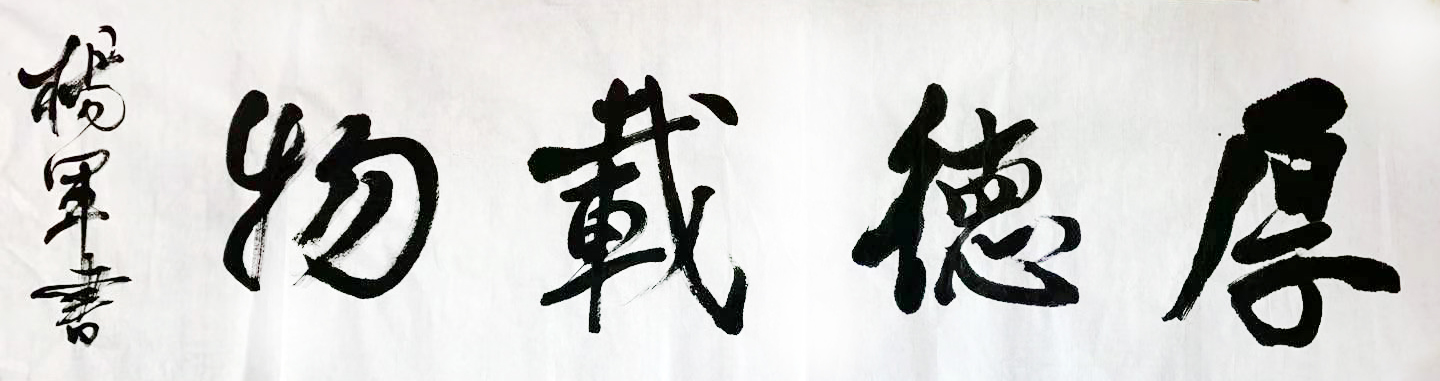 厚德載物
楊軍書